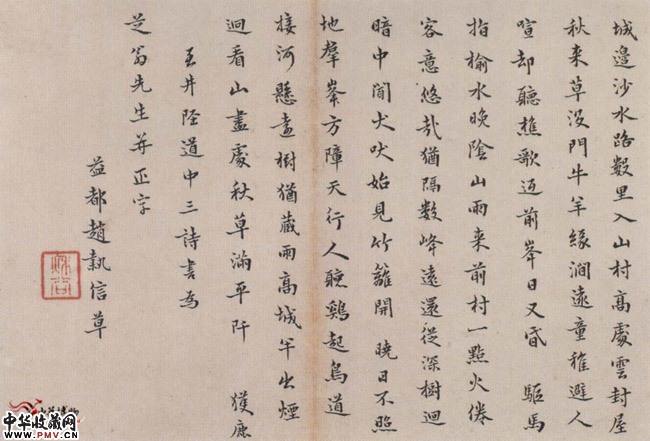 城邊沙水路數里入山村高處雲封屋
秋来草沒門牛羊緣澗遠童稚避人
喧却聽樵歌近前峯日又昏 驅馬
指榆水晚陰山雨来前村一點火倦
客意悠哉猶隔數峰遠還從深樹迴
暗中聞犬吠始見竹籬開 曉日不照
地羣峯方障天行人聽鷄起鳥道
接河懸樹猶藏雨高城半出煙
迴看山盡處秋草滿平阡 獲鹿
至井陘道中三詩書為
芝翁先生并正字
益都趙執信草
中华收藏网
WWW.PMV.CN